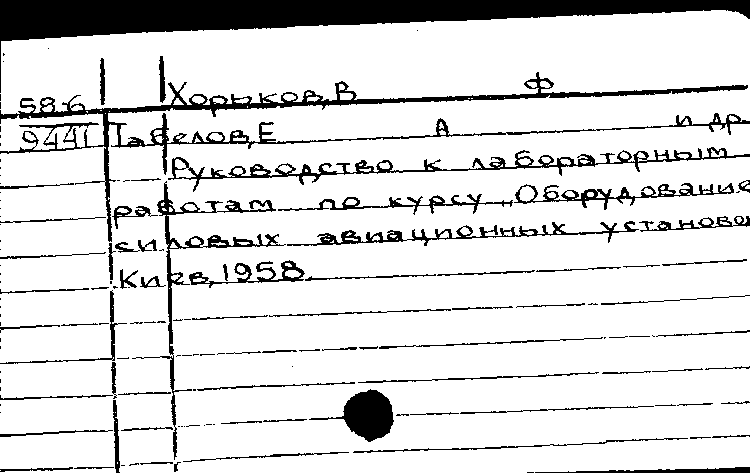 58-6 Хорьков, В Ф
9441 Габелов, Е А и др
Руководство к лабораторным
работам по курсу „Оборудование
силовых авиационных установо
Киев, 1958.